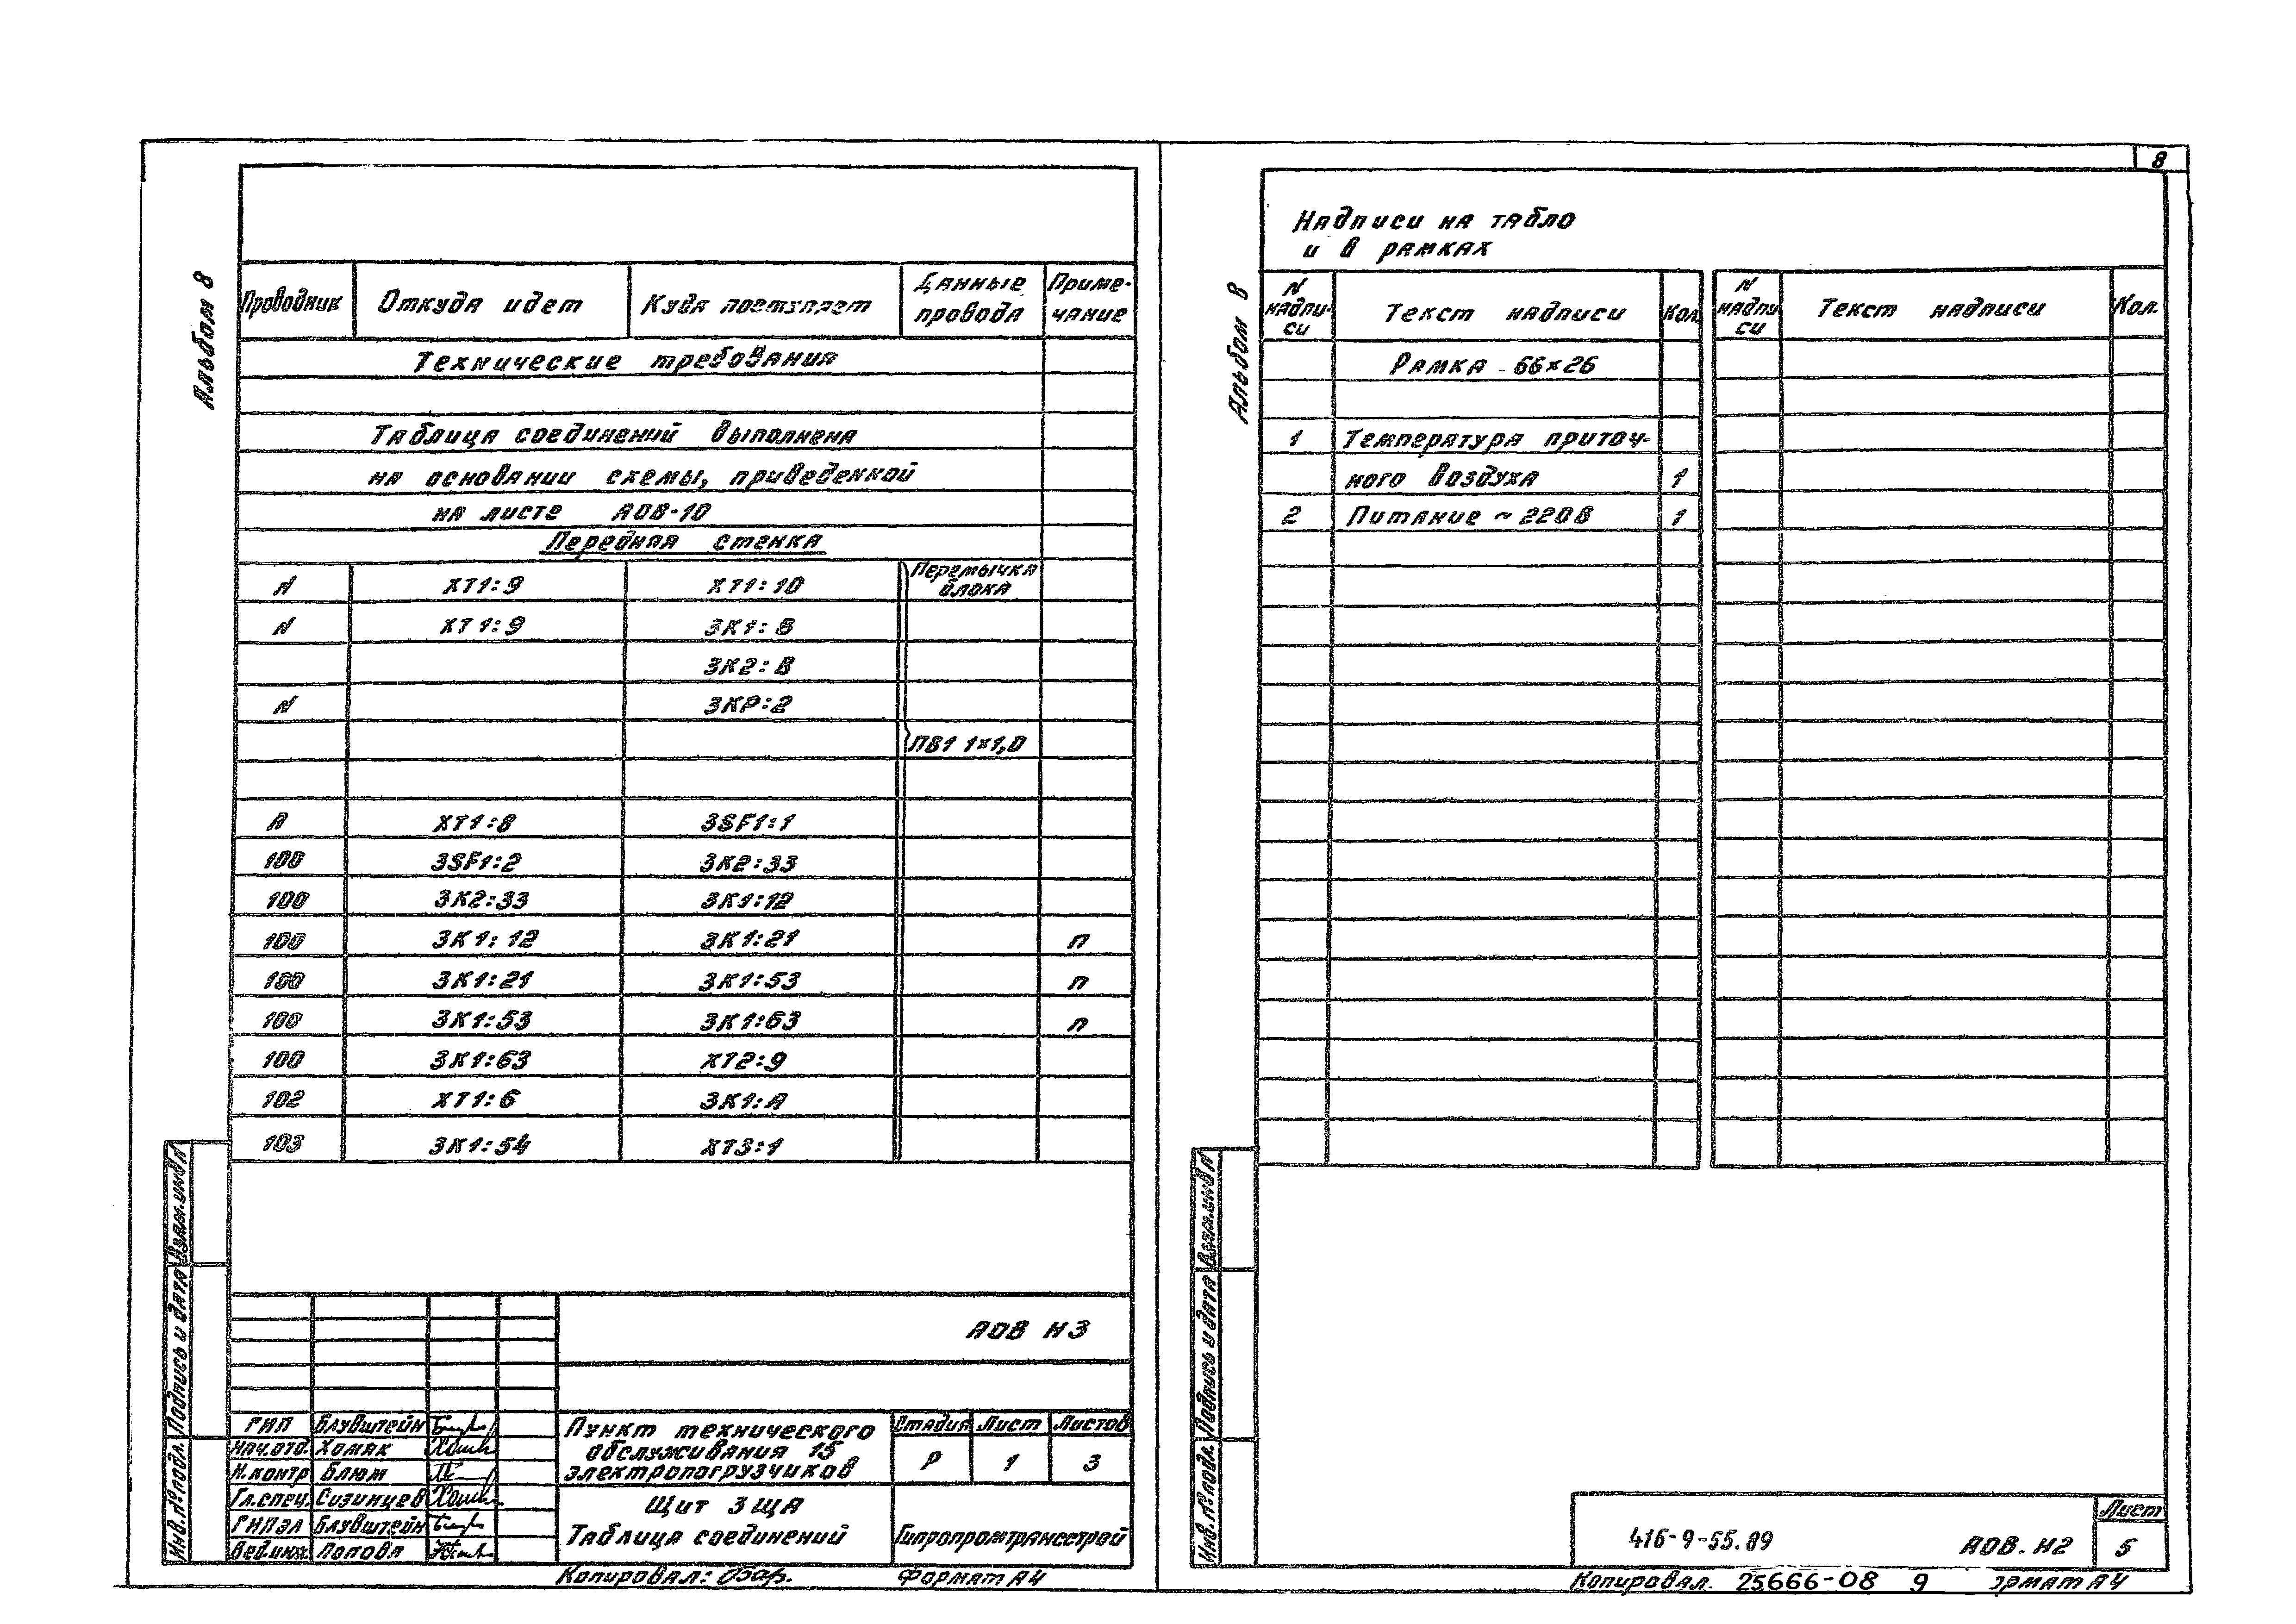 8
Альбом 8
Проводник Откуда идет Куда поступает Данные провода Приме-чание
Технические требования
Таблица соединений выполнена
на основании схемы, приведенной
на листе АОВ-10
Передняя стенка
N ХТ1:9 ХТ1:10 Перемычка блока
N ХТ1:9 3К1:В
3К2:В
N 3КР:2
ПВ1 1х1,0
А ХТ1:8 3SF1:1
100 3SF1:2 3К2:33
100 3К2:33 3К1:12
100 3К1:12 3К1:21 п
100 3К1:21 3К1:53 п
100 3К1:53 3К1:63 п
100 3К1:63 ХТ2:9
102 ХТ1:6 3К1:А
103 3К1:54 ХТ3:1
Взам.инв.N
Подпись и дата
Инв.№ подл.
АОВ Н3
ГИП Блувштейн
Нач.отд. Хомяк
Н.контр Блюм
Гл.спец. Сизинцев
ГИПЭЛ Блувштейн
Вед.инж. Попова
Пункт технического
обслуживания 15
электропогрузчиков
Стадия Лист Листов
Р 1 3
Щит 3ЩА
Таблица соединений
Гипропромтрансстрой
Копировал: Формат А4
Альбом 8
Надписи на табло
и в рамках
N надпи-си Текст надписи Кол. N надпи-си Текст надписи Кол.
Рамка 66×26
1 Температура приточ-
ного воздуха 1
2 Питание ~220В 1
Взам.инв.N
Подпись и дата
Инв.№ подл.
416-9-55.89 АОВ.Н2
Лист
5
Копировал. 25666-08 9 ормат А4